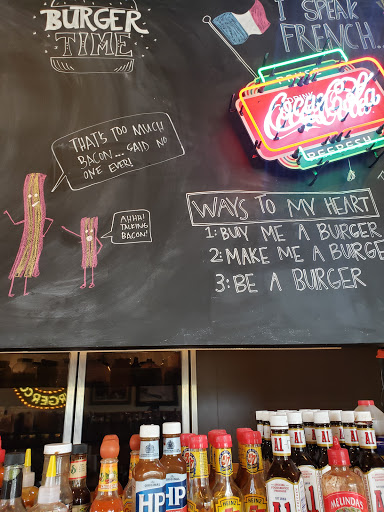 BURGER
TIME
I SPEAK
FRENCH..
DRINK
Coca-Cola
REFRESH
THAT'S TOO MUCH
BACON... SAID NO
ONE EVER!
AHHH!
TALKING
BACON!
WAYS TO MY HEART
1: BUY ME A BURGER
2: MAKE ME A BURGE
3: BE A BURGER
HP
HP
HEINZ
A1
A1
MELINDA'S